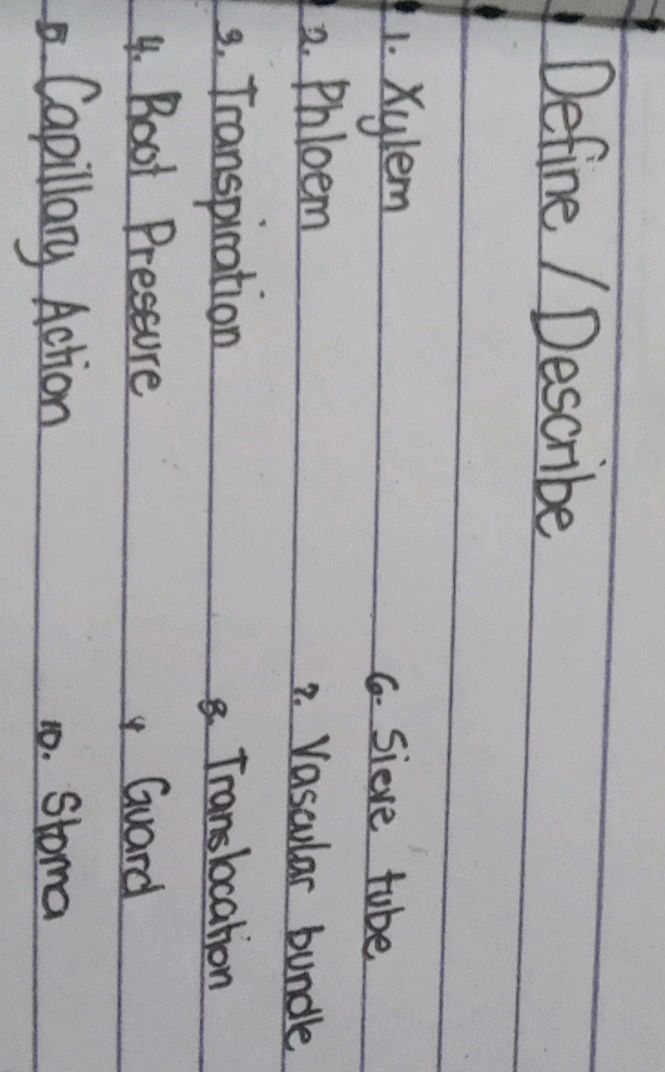 Define / Describe
1. Xylem
2. Phloem
3. Transpiration
4. Root Pressure
5. Capillary Action
6. Sieve tube
7. Vascular bundle
8. Translocation
9 Guard
10. Stoma